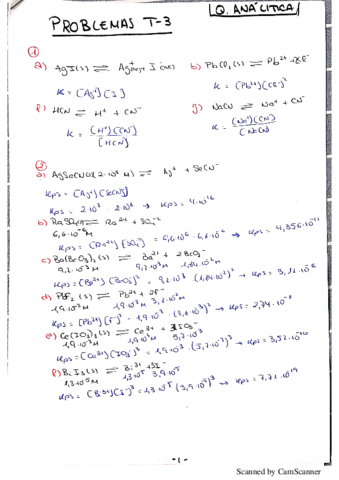 Q. ANALÍTICA
PROBLEMAS T-3
①
a) AgI(s) ⇌ Ag⁺(aq) + I⁻(ac)
b) PbCl₂(s) ⇌ Pb²⁺ + 2Cl⁻
K = [Ag⁺][I⁻]
K = (Pb²⁺)(Cl⁻)²
f) HCN ⇌ H⁺ + CN⁻
g) NaCN ⇌ Na⁺ + CN⁻
K = [H⁺][CN⁻] / [HCN]
K = (Na⁺)(CN⁻) / (NaCN)
②
a) AgSeCN ⇌ Ag⁺ + SeCN⁻
Kps = [Ag⁺][SeCN⁻]
Kps = 2·10⁻⁸ · 2·10⁻⁸ → Kps = 4·10⁻¹⁶
b) RaSO₄ ⇌ Ra²⁺ + SO₄²⁻
6,6·10⁻⁶M
Kps = (Ra²⁺)(SO₄²⁻) = 6,6·10⁻⁶ · 6,6·10⁻⁶ → Kps = 4,356·10⁻¹¹
c) Ba(BrO₃)₂(s) ⇌ Ba²⁺ + 2BrO₃⁻
9,2·10⁻³M 9,2·10⁻³M 1,84·10⁻²M
Kps = (Ba²⁺)(BrO₃⁻)² = 9,2·10⁻³ (1,84·10⁻²)² → Kps = 3,11·10⁻⁶
d) PbF₂(s) ⇌ Pb²⁺ + 2F⁻
1,9·10⁻³M 1,9·10⁻³M
Kps = [Pb²⁺][F⁻]² = 1,9·10⁻³ · → Kps = 2,74·10⁻⁸
e) Ce(IO₃)₃(s) ⇌ Ce³⁺ + 3IO₃⁻
1,9·10⁻³M 1,9·10⁻³M 5,7·10⁻³
Kps = (Ce³⁺)(IO₃⁻)³ = 1,9·10⁻³ (5,7·10⁻³)³ → Kps = 3,52·10⁻¹⁰
f) BiI₃(s) ⇌ Bi³⁺ + 3I⁻
1,3·10⁻⁵M 1,3·10⁻⁵ 3,9·10⁻⁵
Kps = (Bi³⁺)(I⁻)³ = 1,3·10⁻⁵ (3,9·10⁻⁵)³ → Kps = 7,71·10⁻¹⁹
-1-
Scanned by CamScanner